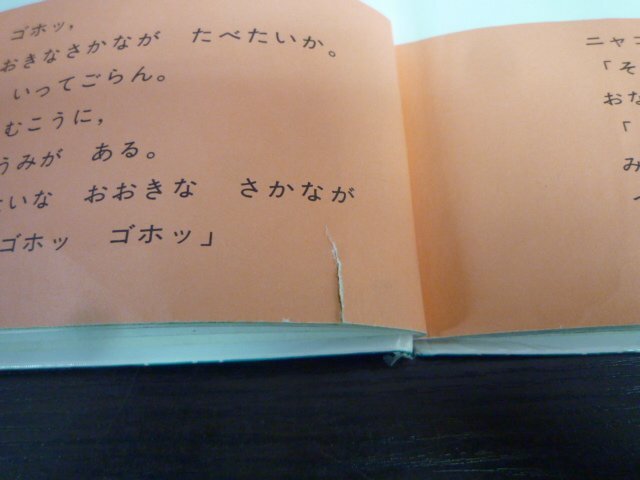 ゴホッ,
おおきなさかなが　たべたいか。
いってごらん。
むこうに,
うみが　ある。
いな　おおきな　さかなが
ゴホッ　ゴホッ」
ニャコ
「そ
おな
「
み